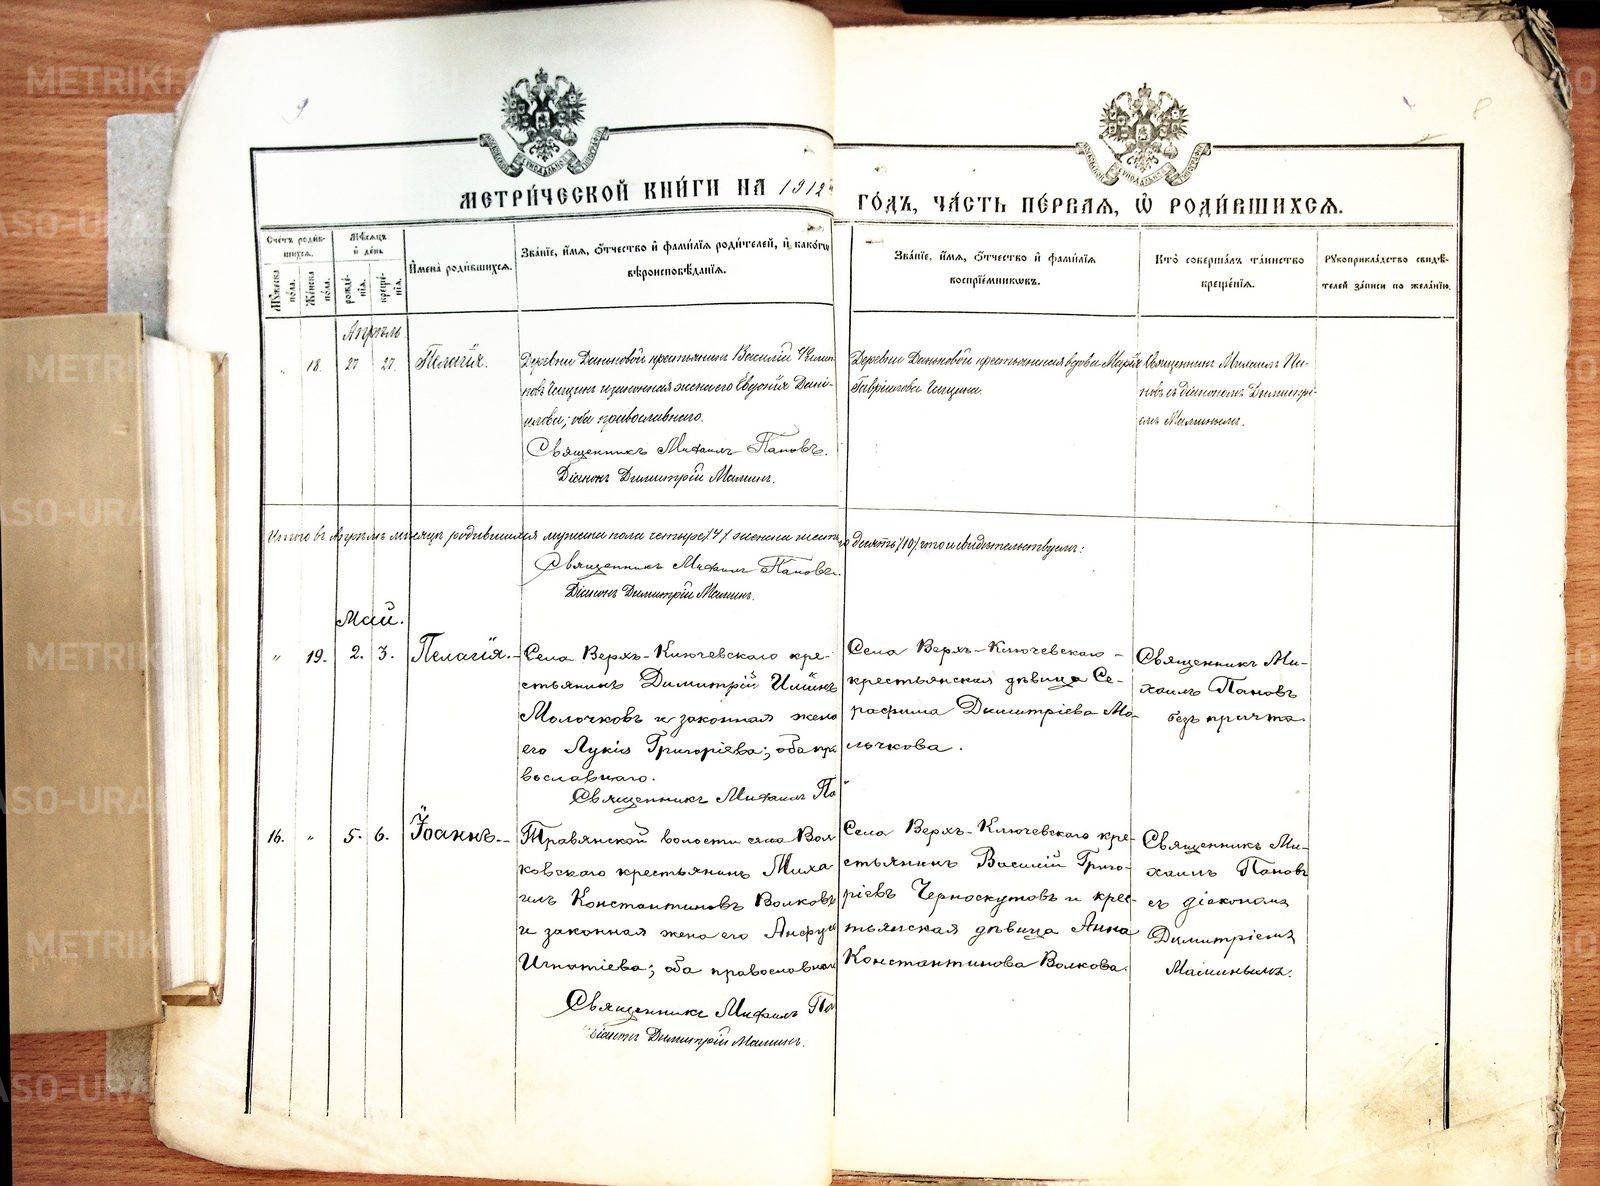 МЕТРИ́ЧЕСКОЙ КНИ́ГИ НА 1912й
ГО́ДЪ, ЧА́СТЬ ПЕ́РВАЯ, Ѿ РОДИ́ВШИХСЯ.
Сче́тъ роди́вшихся.
Му́жеска по́ла.
Же́нска по́ла.
Мѣ́сяцъ и де́нь
рожде́нія.
креще́нія.
Имена̀ роди́вшихся.
Зва́нїе, и́мя, о́тчество и фами́лїя роди́телей, и како́гѡ
вѣроисповѣ́данїя.
Зва́нїе, и́мя, о́тчество и фами́лїя
воспрїе́мникѡвъ.
Кто̀ соверша́лъ та́инство
креще́нїя.
Рукоприкла́дство свидѣ́-
телей за́писи по жела́нїю.
Апрѣль
„ 18. 27 27. Пелагія.
Деревни крестьянинъ Василій
и законная жена его Евдокія Дані-
илова; оба православнаго.
Священникъ Михаилъ Пановъ.
Діаконъ Димитрій Маминъ.
Деревни крестьянская вдова Марія
Гавріилова
Священникъ Михаилъ Па-
новъ съ діакономъ Димитрі-
емъ Маминымъ.
Итого въ Апрѣлѣ мѣсяцѣ родившихся мужска пола четыре /4/ женска десять /10/ что и свидѣтельствуемъ:
Священникъ Михаилъ Пановъ.
Діаконъ Димитрій Маминъ.
Май.
„ 19. 2. 3. Пелагія.
Села Верхъ-Ключевскаго кре-
стьянинъ Димитрій Илiинъ
Молочковъ и законная жена
его Лукія Григоріева; оба пра
вославнаго.
Священникъ Михаилъ Па
Села Верхъ-Ключевскаго
крестьянская дѣвица Се-
рафима Димитріева Мо-
лочкова.
Священникъ Ми-
хаилъ Пановъ
безъ причта
16. „ 5. 6. Іоаннъ.
Травянской волости села Вол
ковскаго крестьянинъ Миха
илъ Константиновъ Волковъ
и законная жена его Анфу
Игнатіева; оба православнаг
Священникъ Михаилъ Па
діаконъ Димитрій Маминъ.
Села Верхъ-Ключевскаго кре-
стьянинъ Василій Григо-
ріевъ Черноскутовъ и крес-
тьянская дѣвица Анна
Константинова Волкова.
Священникъ Ми-
хаилъ Пановъ
съ діакономъ
Димитріемъ
Маминымъ.